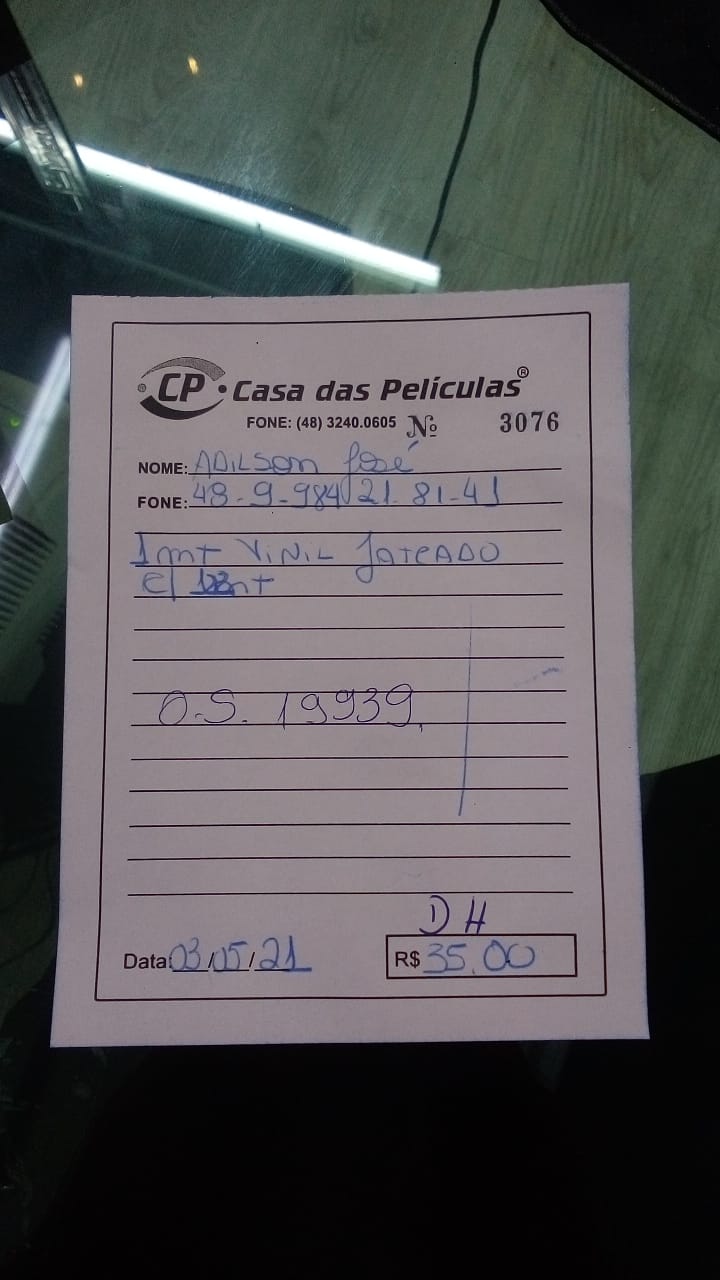 CP Casa das Películas®
FONE: (48) 3240.0605 Nº 3076
NOME: ADILSON José
FONE: 48-9-984 21-81-41
1 mt VINIL JATEADO
c/
O.S. 19939
DH
Data: 03/05/21 R$ 35,00